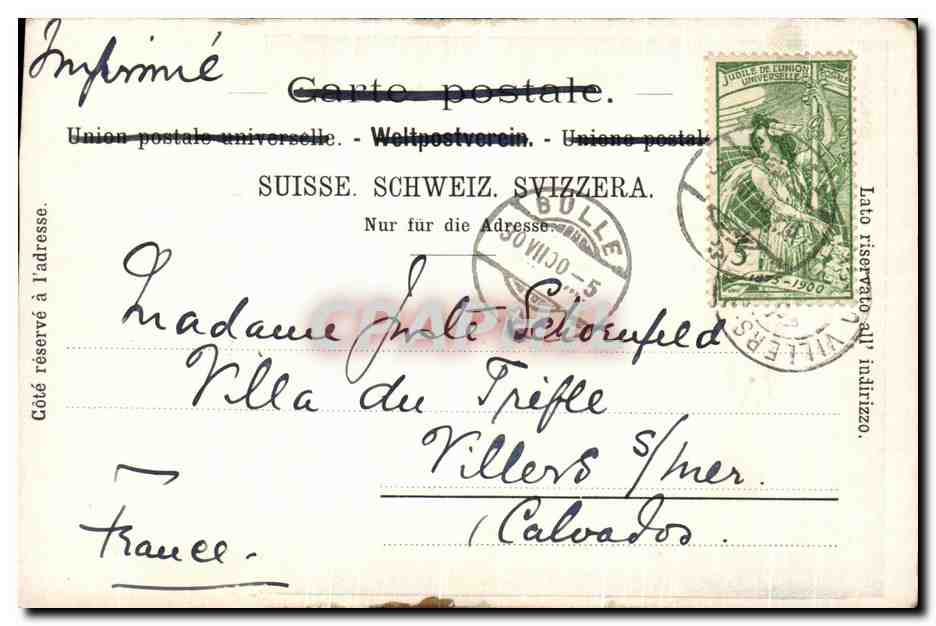 Imprimé
Carte postale.
Union postale universelle. - Weltpostverein. - Unione postale
SUISSE. SCHWEIZ. SVIZZERA.
Nur für die Adresse.
Côté réservé à l'adresse.
Lato riservato all' indirizzo.
JUBILÉ DE L'UNION
POSTALE UNIVERSELLE
5
1875-1900
BULLE
30 VII 00-5
VILLERS
Madame Juste Schoenfeld
Villa du Trèfle
Villers s/mer.
Calvados.
France.